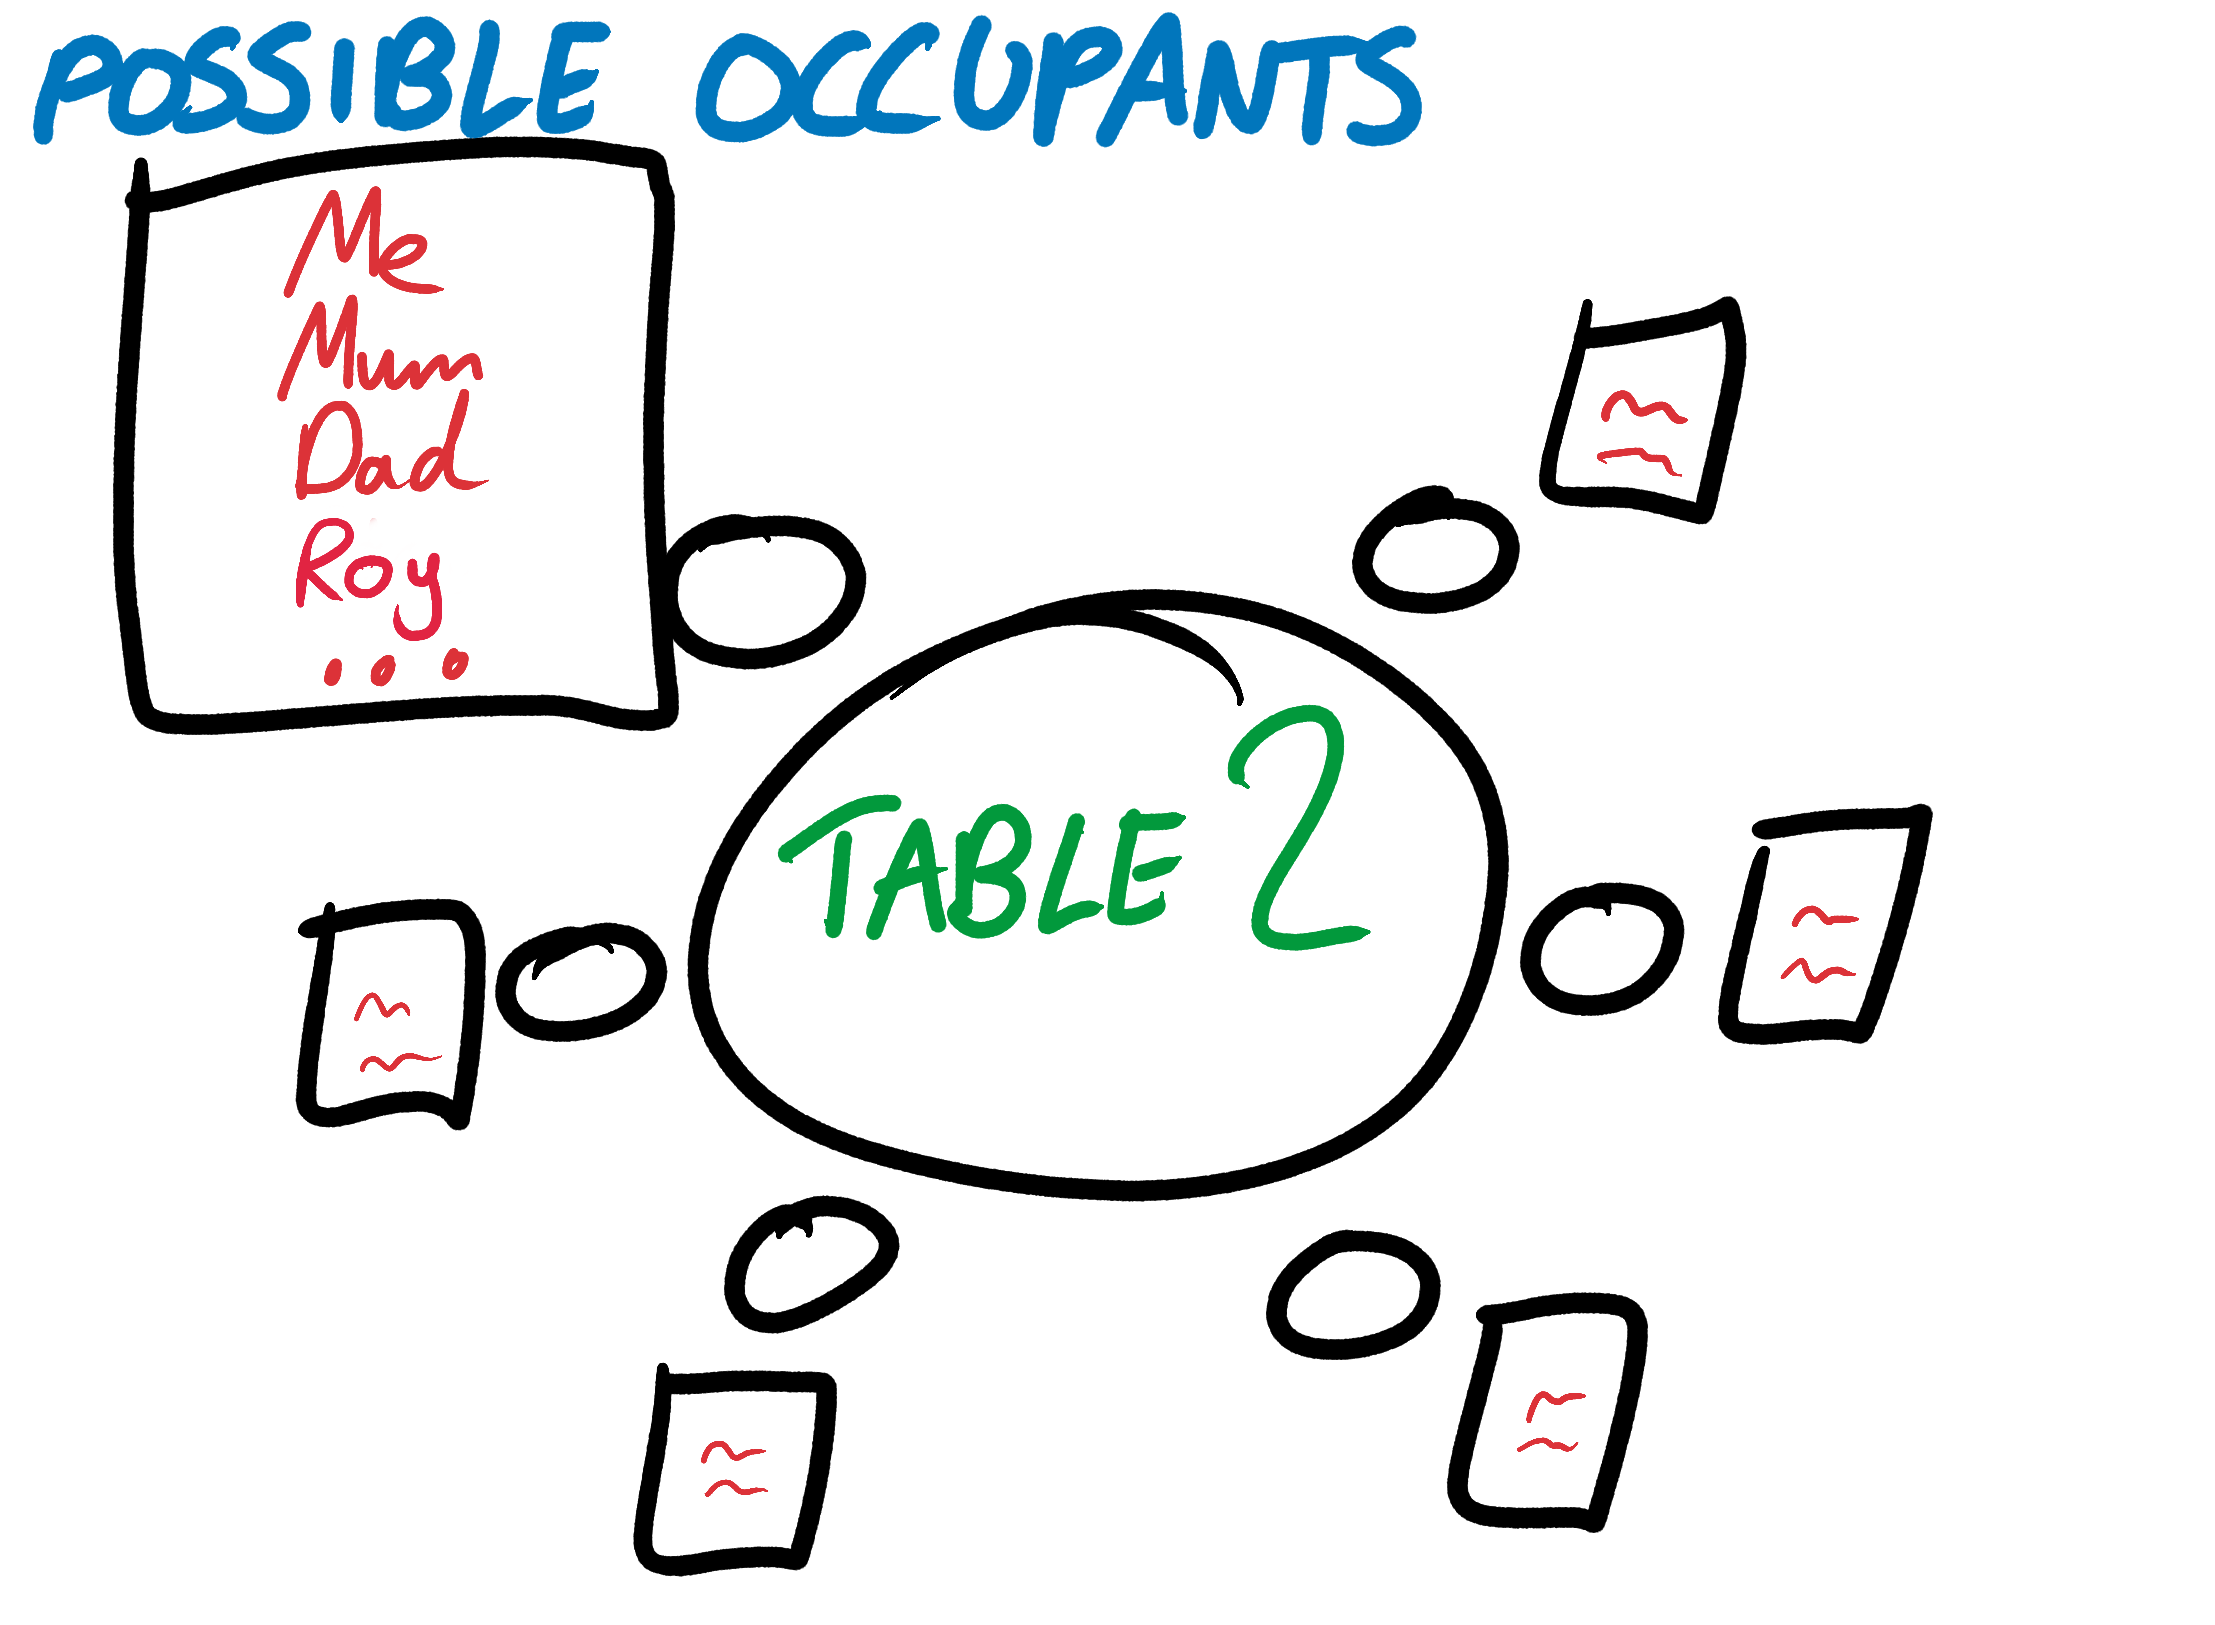 POSSIBLE OCCUPANTS
Me
Mum
Dad
Roy
...
TABLE 2